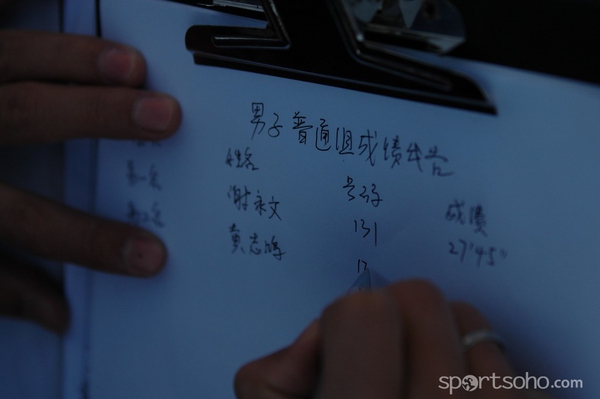 男子普通组成绩公告
姓名 号码 成绩
第一名 谢永文 131 27'45"
第二名 黄志 1
sportsoho.com